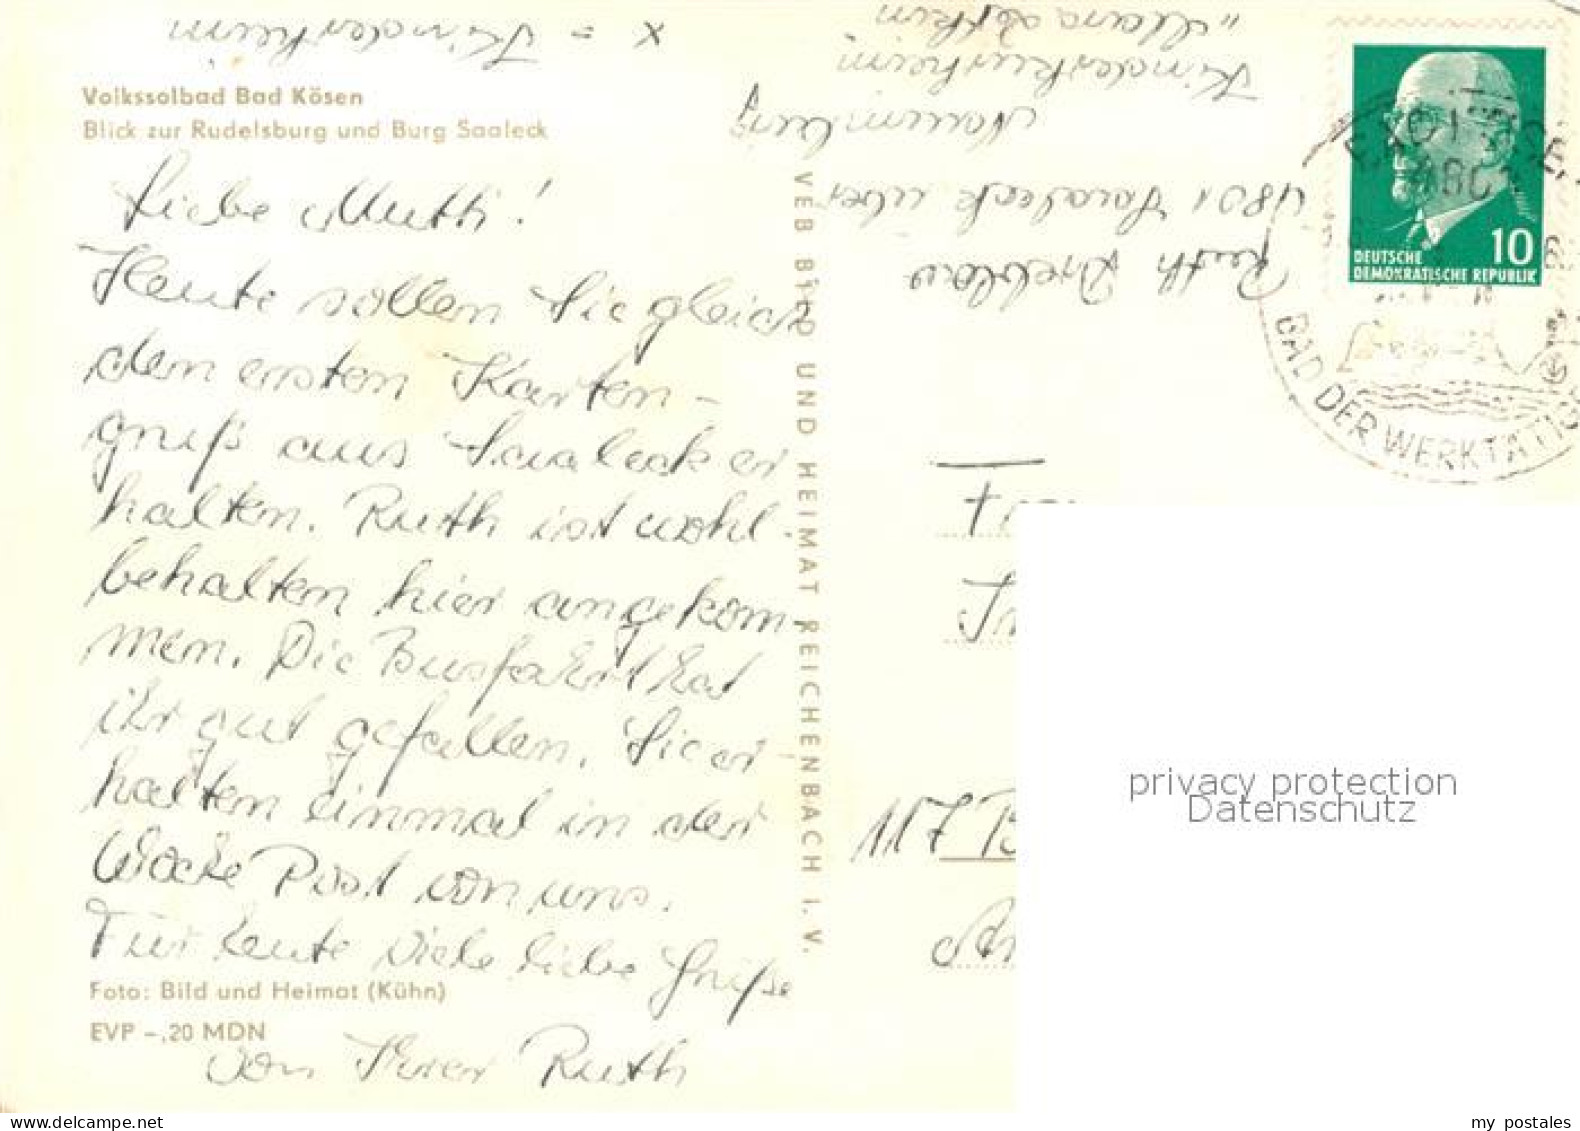 x = Kinderheim
Volkssolbad Bad Kösen
Blick zur Rudelsburg und Burg Saaleck
Liebe Mutti!
Heute sollen Sie gleich
den ersten Karten-
gruß aus Saaleck er
halten. Ruth ist wohl-
behalten hier angekom
men. Die Busfahrt hat
ihr gut gefallen. Sie er-
halten einmal in der
Woche Post von uns.
Für heute viele liebe Grüße
von Ihrer Ruth
Foto: Bild und Heimat (Kühn)
EVP -,20 MDN
VEB BILD UND HEIMAT REICHENBACH I. V.
Ruth
4801 Saaleck über
Naumburg
Kinderkurheim
10
DEUTSCHE
DEMOKRATISCHE REPUBLIK
BAD DER WERKTÄTIG
117 B
privacy protection
Datenschutz
my postales